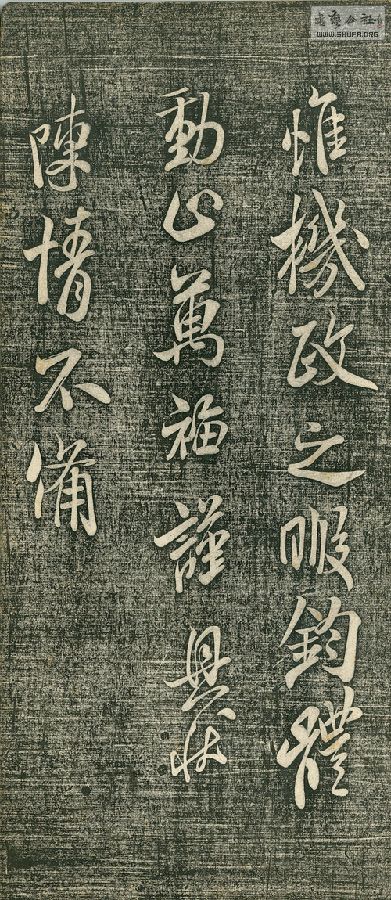 惟機政之暇鈞體
動止萬福謹具狀
陳情不備
WWW.SHUFA.ORG